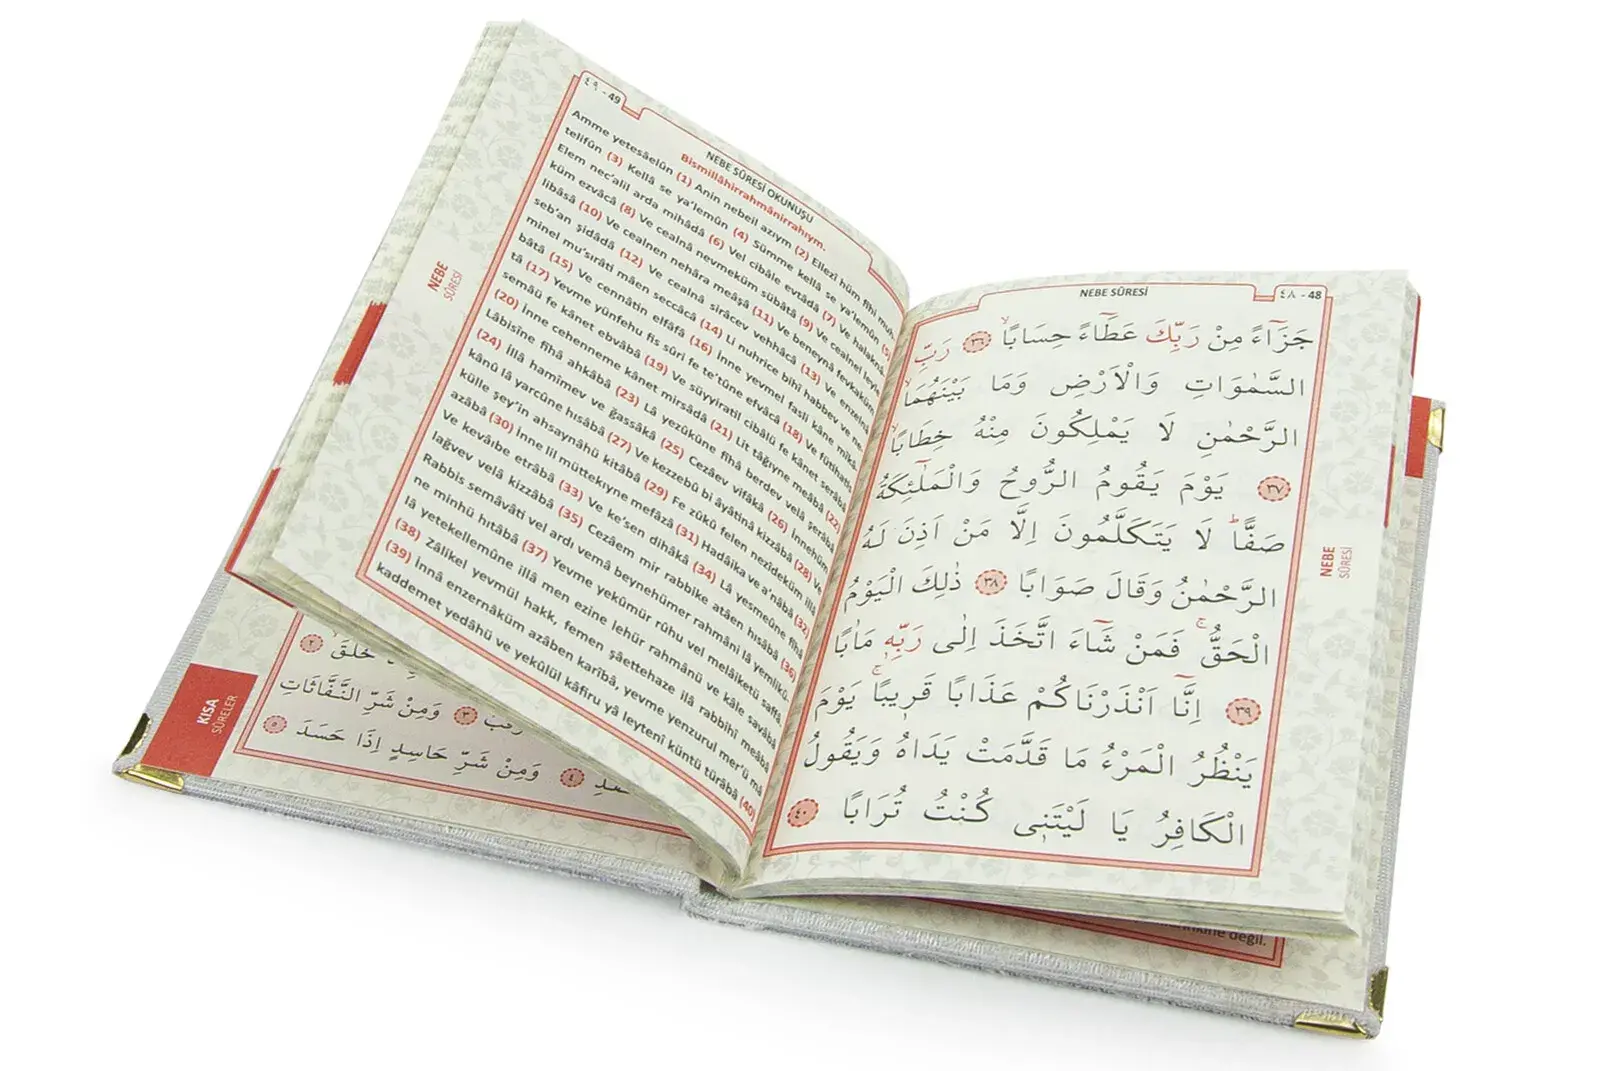 NEBE SÛRESİ
٤٨ - 48
جَزَٓاءً مِنْ رَبِّكَ عَطَٓاءً حِسَابًاۙ ﴿٣٦﴾ رَبِّ
السَّمٰوَاتِ وَالْاَرْضِ وَمَا بَيْنَهُمَا
الرَّحْمٰنِ لَا يَمْلِكُونَ مِنْهُ خِطَابًاۙ
﴿٣٧﴾ يَوْمَ يَقُومُ الرُّوحُ وَالْمَلٰٓئِكَةُ
صَفًّاۜ لَا يَتَكَلَّمُونَ اِلَّا مَنْ اَذِنَ لَهُ
الرَّحْمٰنُ وَقَالَ صَوَابًا ﴿٣٨﴾ ذٰلِكَ الْيَوْمُ
الْحَقُّۚ فَمَنْ شَٓاءَ اتَّخَذَ اِلٰى رَبِّه۪ مَاٰبًا
﴿٣٩﴾ اِنَّٓا اَنْذَرْنَاكُمْ عَذَابًا قَر۪يبًاۚ يَوْمَ
يَنْظُرُ الْمَرْءُ مَا قَدَّمَتْ يَدَاهُ وَيَقُولُ
الْكَافِرُ يَا لَيْتَن۪ى كُنْتُ تُرَابًا ﴿٤٠﴾
NEBE
SÛRESİ
٤٩ - 49
NEBE SÛRESİ OKUNUŞU
Bismillâhirrahmânirrahıym.
Amme yetesâelûn (1) Anin nebeil azıym (2) Ellezî hüm fihi muh-
telifûn (3) Kellâ se ya'lemûn (4) Sümme kellâ se ya'lemûn (5)
Elem nec'alil arda mihâdâ (6) Vel cibâle evtâdâ (7) Ve halaknâ-
küm ezvâcâ (8) Ve cealnâ nevmeküm sübâtâ (9) Ve cealnel leyle
libâsâ (10) Ve cealnen nehâra meâşâ (11) Ve beneynâ fevkaküm
seb'an şidâdâ (12) Ve cealnâ sirâcev vehhâcâ (13) Ve enzelnâ
minel mu'sırâti mâen seccâcâ (14) Li nuhrice bihî habbev ve ne-
bâtâ (15) Ve cennâtin elfâfâ (16) İnne yevmel fasli kâne mîkâ-
tâ (17) Yevme yünfehu fis sûri fe te'tûne efvâcâ (18) Ve fütihatis
semâü fe kânet ebvâbâ (19) Ve süyyiratil cibâlü fe kânet serâbâ
(20) İnne cehenneme kânet mirsâdâ (21) Lit tâğıyne meâbâ (22)
Lâbisîne fîhâ ahkâbâ (23) Lâ yezûkûne fîhâ berdev velâ şerâbâ
(24) İllâ hamîmev ve ğassâkâ (25) Cezâev vifâkâ (26) İnnehüm
kânû lâ yarcûne hısâbâ (27) Ve kezzebû bi âyâtinâ kizzâbâ (28) Ve
külle şey'in ahsaynâhü kitâbâ (29) Fe zûkû felen nezîdeküm illâ
azâbâ (30) İnne lil müttekıyne mefâzâ (31) Hadâika ve a'nâbâ (32)
Ve kevâıbe etrâbâ (33) Ve ke'sen dihâkâ (34) Lâ yesmeûne fîhâ
lağvev velâ kizzâbâ (35) Cezâem mir rabbike atâen hısâbâ (36)
Rabbis semâvâti vel ardı vemâ beynehümer rahmâni lâ yemlikû-
ne minhü hıtâbâ (37) Yevme yekûmür rûhu vel melâiketü saffâ,
lâ yetekellemûne illâ men ezine lehür rahmânü ve kâle savâbâ
(38) Zâlikel yevmül hakk, femen şâettehaze ilâ rabbihî meâbâ
(39) İnnâ enzernâküm azâben karîbâ, yevme yenzurul mer'ü mâ
kaddemet yedâhü ve yekûlül kâfiru yâ leytenî küntü türâbâ (40)
NEBE
SÛRESİ
خَلَقَۙ ﴿٢﴾
﴿٣﴾ وَمِنْ شَرِّ النَّفَّاثَاتِ
﴿٤﴾ وَمِنْ شَرِّ حَاسِدٍ اِذَا حَسَدَ ﴿٥﴾
KISA
SÛRELER
değil.